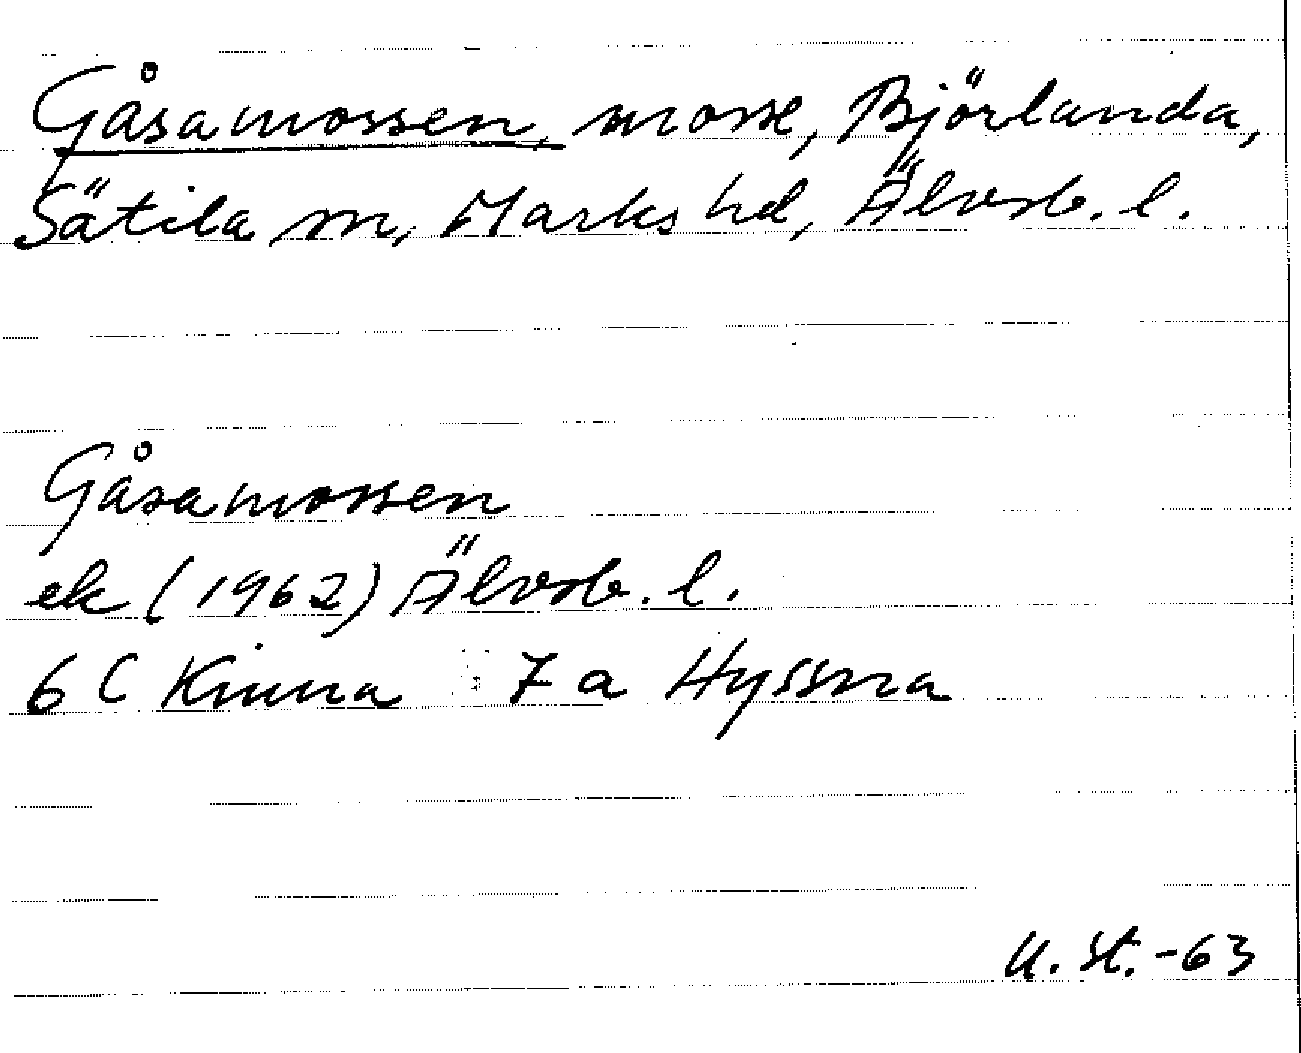 Gåsamossen, mosse, Björlanda,
Sätila sn, Marks hd, Älvsb. l.
Gåsamossen
ek (1962) Älvsb. l.
6 C Kinna 7 a Hyssna
U. St. -63